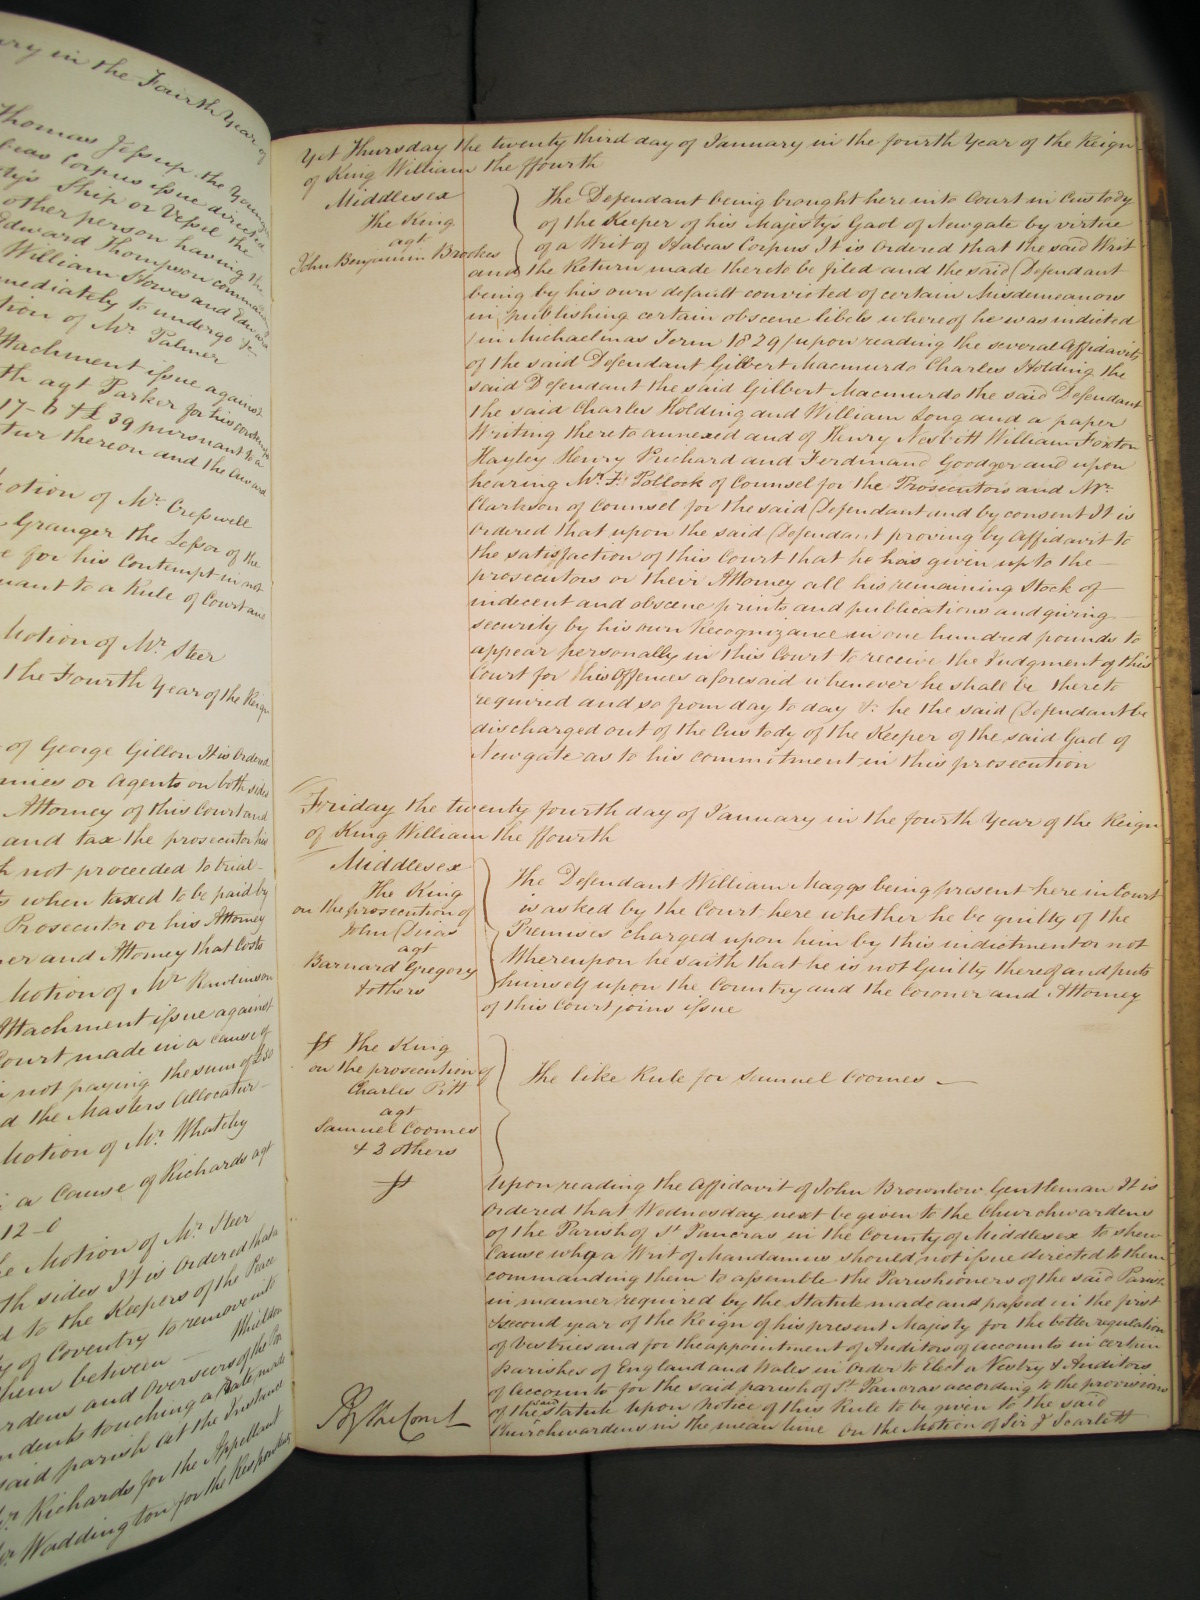 ary in the Fourth Year of
Thomas Jessup the Younger
beas Corpus issue directed
ty's Ship or Vessel the
other person having the
Edward Thompson
William Stowes and Edward
mediately to undergo &c
tion of Mr. Palmer
Attachment issue against
th agt Parker for his
17-6 & £39 pursuant to a
tur thereon and the Award
Motion of Mr. Cresswell
Granger the Lessor of the
e for his Contempt in not
uant to a Rule of Court
Motion of Mr. Steer
the Fourth Year of the Reign
of George Gillon It is Ordered
nies or Agents on both sides
Attorney of this Court and
and tax the prosecutor his
h not proceeded to trial
s when taxed to be paid by
Prosecutor or his Attorney
er and Attorney that Costs
Motion of Mr. Rawlinson
Attachment issue against
Court made in a cause of
not paying the sum of £30
d the Masters Allocatur
Motion of Mr. Whateley
a Cause of Richards agt
12-0
e Motion of Mr. Steer
th sides It is Ordered that a
d to the Keepers of the Peace
y of Coventry to remove into
them between
rdens and Overseers of the
ndents touching a
said parish at the Instance
Mr. Richards for the Appellant
Mr. Waddington for the Respondents
Yet Thursday the twenty third day of January in the fourth Year of the Reign
of King William the ffourth
Middlesex
The King
agt
John Benjamin Brookes
The Defendant being brought here into Court in Custody
of the Keeper of his Majestys Gaol of Newgate by virtue
of a Writ of Habeas Corpus It is Ordered that the said Writ
and the Return made thereto be filed and the said Defendant
being by his own default convicted of certain Misdemeanors
in publishing certain obscene libels whereof he was indicted
in Michaelmas Term 1829 upon reading the several Affidavits
of the said Defendant Gilbert Macmurdo Charles Holding the
said Defendant the said Gilbert Macmurdo the said Defendant
the said Charles Holding and William Long and a paper
Writing thereto annexed and of Henry Nesbitt William Foxton
Hayley Henry Prichard and Ferdinand Goodger and upon
hearing Mr. F. Pollock of Counsel for the Prosecutors and Mr.
Clarkson of Counsel for the said Defendant and by consent It is
Ordered that upon the said Defendant proving by Affidavit to
the satisfaction of this Court that he has given up to the
prosecutors or their Attorney all his remaining Stock of
indecent and obscene prints and publications and giving
security by his own Recognizance in one hundred pounds to
appear personally in this Court to receive the Judgment of this
Court for his Offences aforesaid whenever he shall be thereto
required and so from day to day &c he the said Defendant be
discharged out of the Custody of the Keeper of the said Gaol of
Newgate as to his commitment in this prosecution
Friday the twenty fourth day of January in the fourth Year of the Reign
of King William the ffourth
Middlesex
The King
on the prosecution of
John Dicas
agt
Barnard Gregory
& others
The Defendant William Maggs being present here in Court
is asked by the Court here whether he be guilty of the
Premises charged upon him by this indictment or not
Whereupon he saith that he is not Guilty thereof and puts
himself upon the Country and the Coroner and Attorney
of this Court joins issue
ss The King
on the prosecution of
Charles Pitt
agt
Samuel Coomes
& 3 others
The like Rule for Samuel Coomes
ss
Upon reading the Affidavit of John Brownlow Gentleman It is
Ordered that Wednesday next be given to the Churchwardens
of the Parish of St Pancras in the County of Middlesex to shew
Cause why a Writ of Mandamus should not issue directed to them
commanding them to assemble the Parishioners of the said Parish
in manner required by the Statute made and passed in the first
& second year of the Reign of his present Majesty for the better regulation
of Vestries and for the appointment of Auditors of accounts in certain
Parishes of England and Wales in Order to Elect a Vestry & Auditors
of Accounts for the said parish of St. Pancras according to the provisions
of the said Statute Upon Notice of this Rule to be given to the said
Churchwardens in the mean time On the Motion of Sir J Scarlett
By the Court